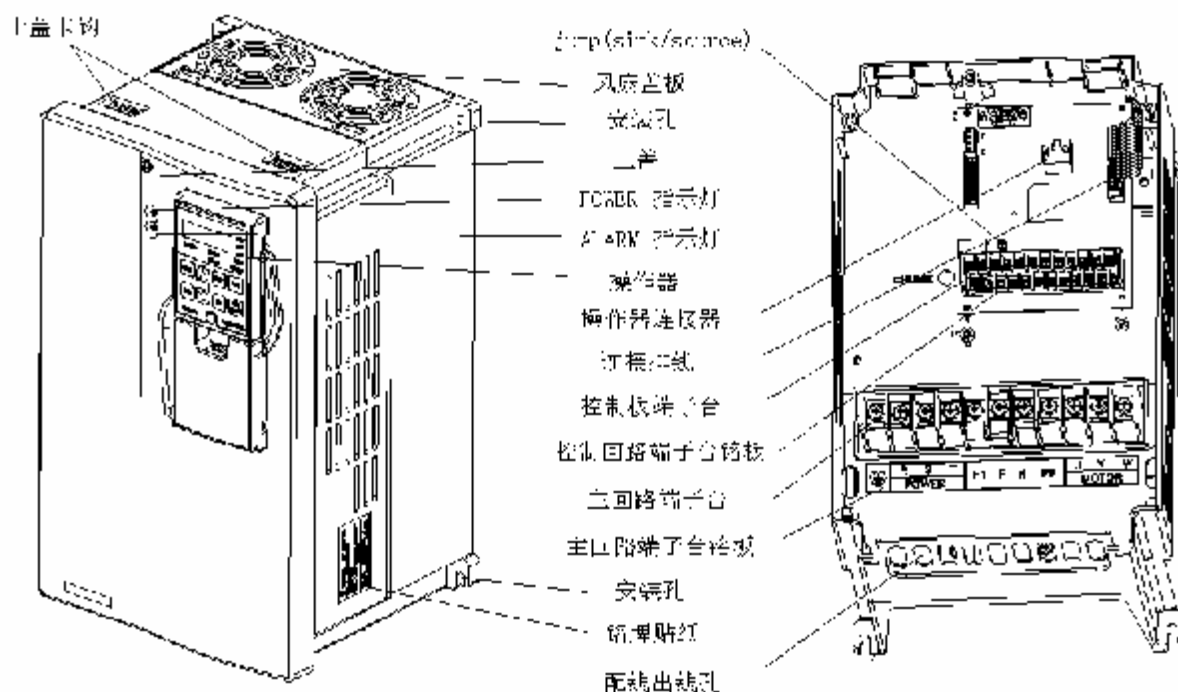 上盖卡钩
jump(sink/source)
风扇盖板
安装孔
上盖
POWER 指示灯
ALARM 指示灯
操作器
操作器连接器
控制板端子台
控制回路端子台铭板
主回路端子台
主回路端子台铭板
安装孔
铭牌贴纸
配线出线孔
POWER
MOTOR